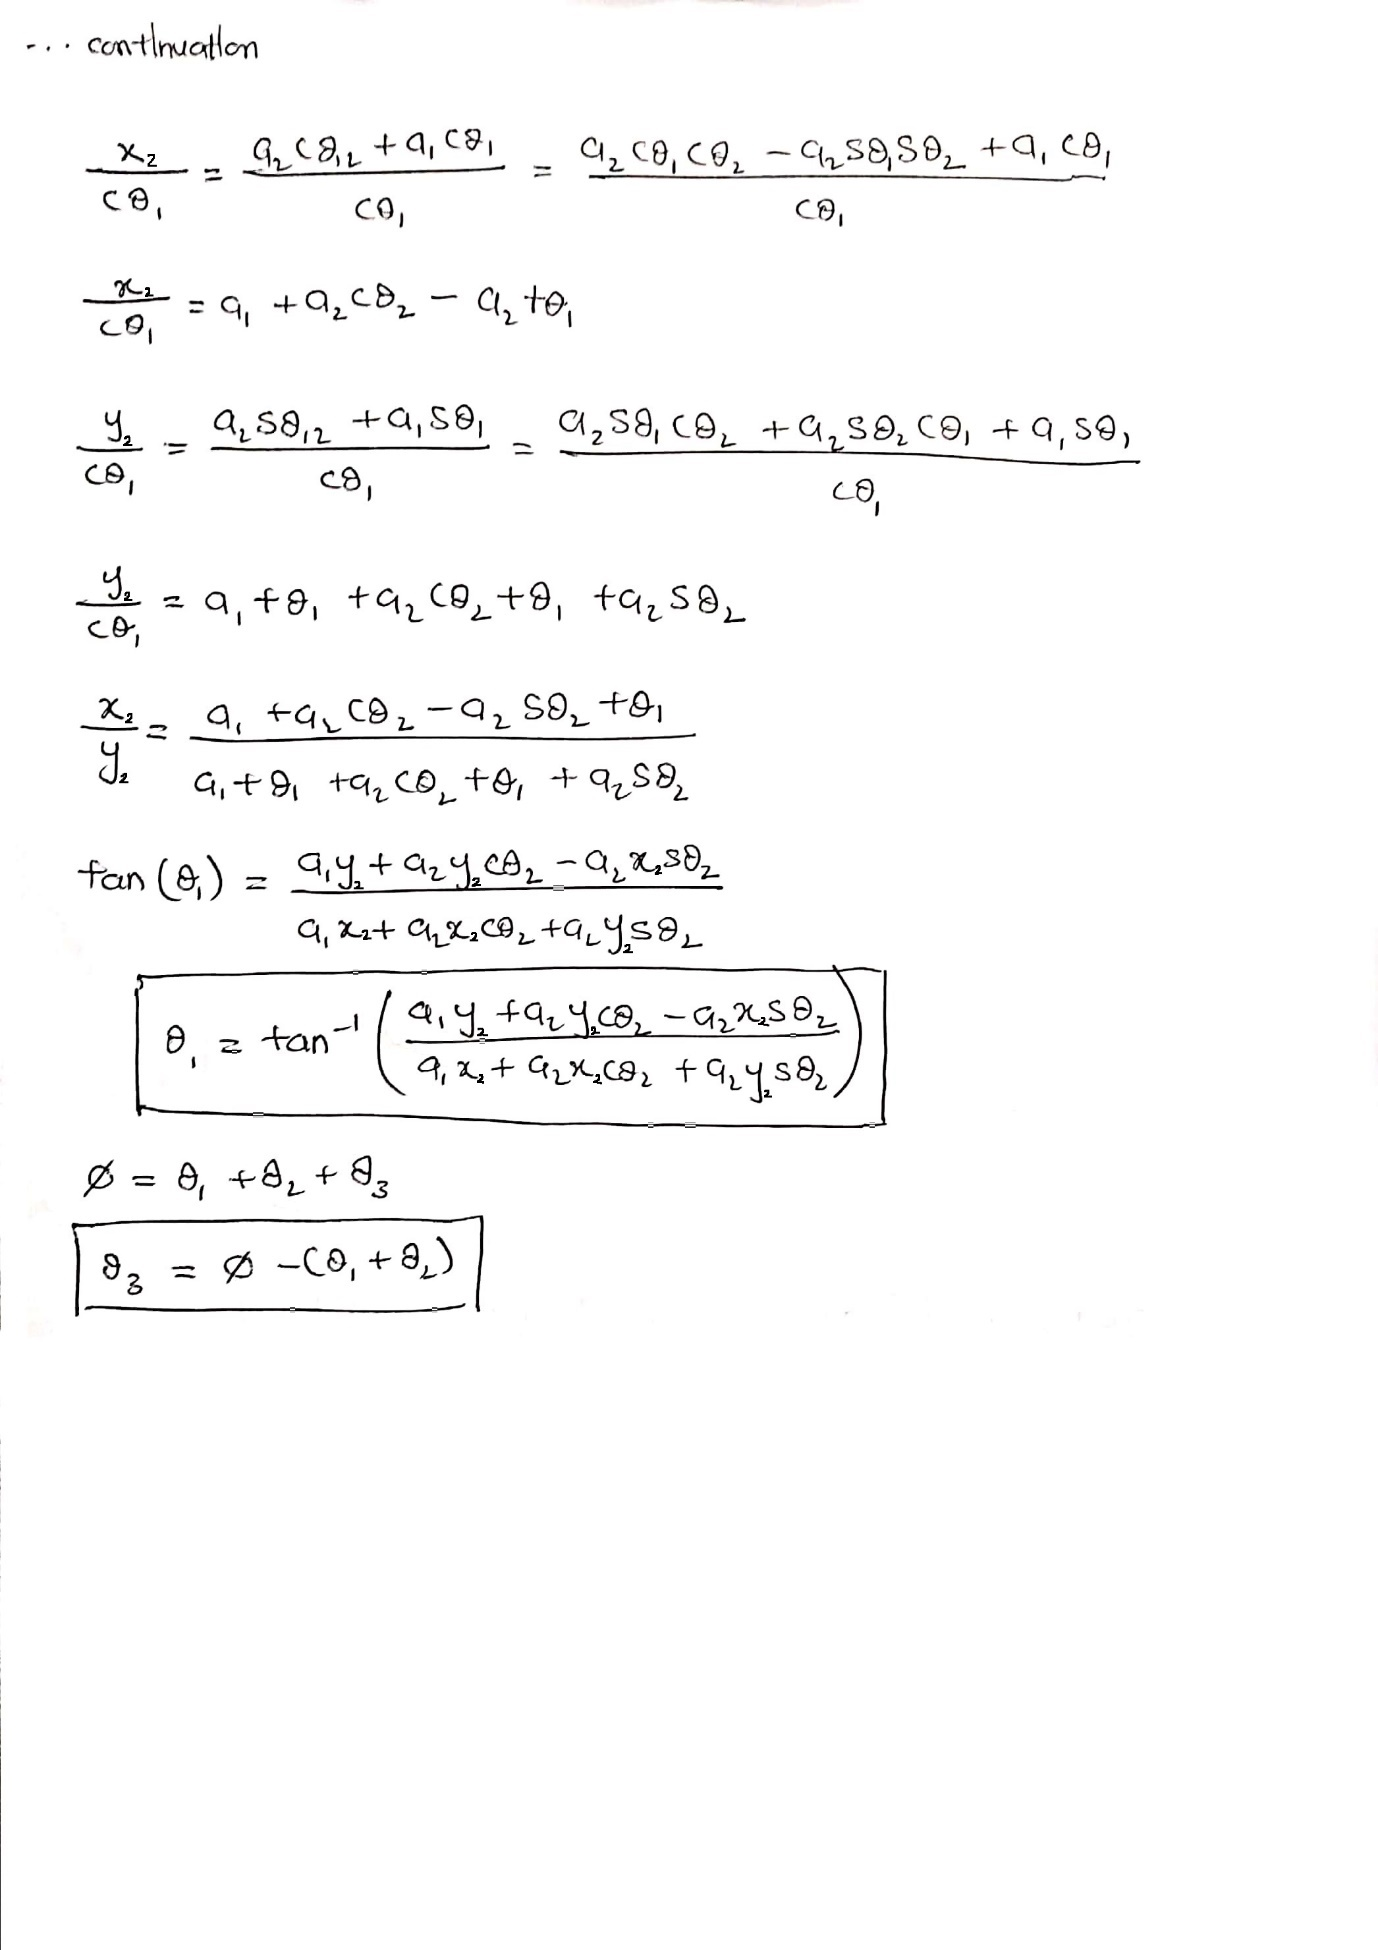 ... continuation
x₂/cθ₁ = (a₂cθ₁₂ + a₁cθ₁)/cθ₁ = (a₂cθ₁cθ₂ - a₂sθ₁sθ₂ + a₁cθ₁)/cθ₁
x₂/cθ₁ = a₁ + a₂cθ₂ - a₂tθ₁
y₂/cθ₁ = (a₂sθ₁₂ + a₁sθ₁)/cθ₁ = (a₂sθ₁cθ₂ + a₂sθ₂cθ₁ + a₁sθ₁)/cθ₁
y₂/cθ₁ = a₁tθ₁ + a₂cθ₂tθ₁ + a₂sθ₂
x₂/y₂ = (a₁ + a₂cθ₂ - a₂sθ₂tθ₁)/(a₁tθ₁ + a₂cθ₂tθ₁ + a₂sθ₂)
tan(θ₁) = (a₁y₂ + a₂y₂cθ₂ - a₂x₂sθ₂)/(a₁x₂ + a₂x₂cθ₂ + a₂y₂sθ₂)
θ₁ = tan⁻¹((a₁y₂ + a₂y₂cθ₂ - a₂x₂sθ₂)/(a₁x₂ + a₂x₂cθ₂ + a₂y₂sθ₂))
Ø = θ₁ + θ₂ + θ₃
θ₃ = Ø - (θ₁ + θ₂)